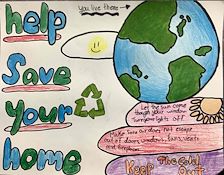 you live there
help
Save
your
home
Let the sun come
though your window
Turn your lights off
Make sure air does not escape
out of doors, windows, fans, vents
and fireplaces
Keep The Cold
Out